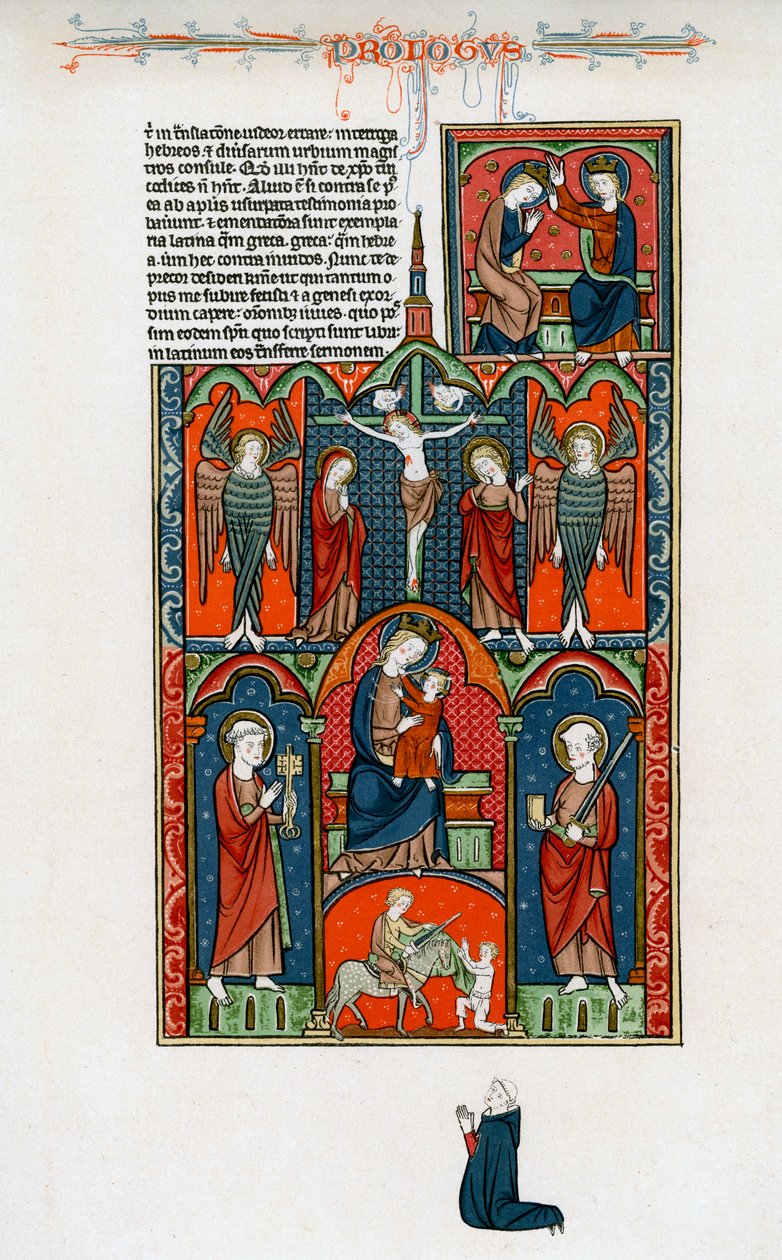 PROLOGVS
t̄ in t̄nslacōne uideor errare: interroga
hebreos ⁊ diuisarum urbium magis
tros consule. Qd̄ illi hn̄t de xp̄o tui
codices n̄ hn̄t. Aliud ē si contra se p᷒
ea ab ap̄lis usurpata testimonia pro
bauunt. ⁊ emendatōra sunt exempla
ria latina qm̄ greca. greca: qm̄ hebre
a. um̄ hec contra inuidos. Nunc te de
precor desideri kīme ut qui tantum o
pus me subire fecisti ⁊ a genesi exor
dium capere: or̄onib; iuues. quo pos̄
sim eodem sp̄u quo scripti sunt libri:
in latinum eos t̄nsferre sermonem.